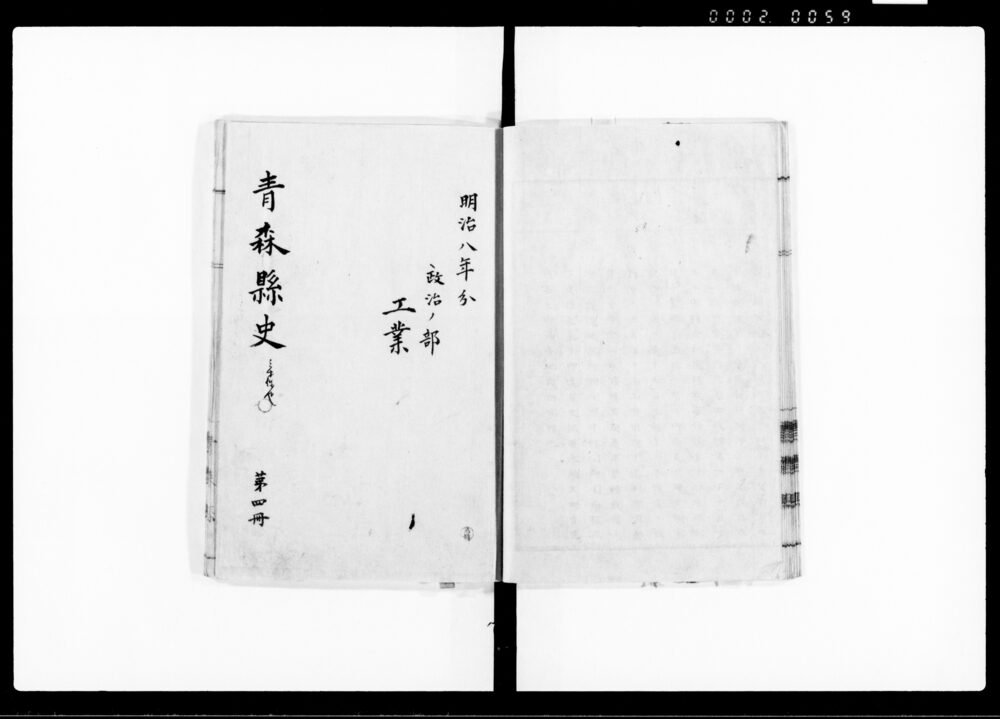 0002 0059
明治八年分
政治ノ部
工業
青森縣史
第四冊